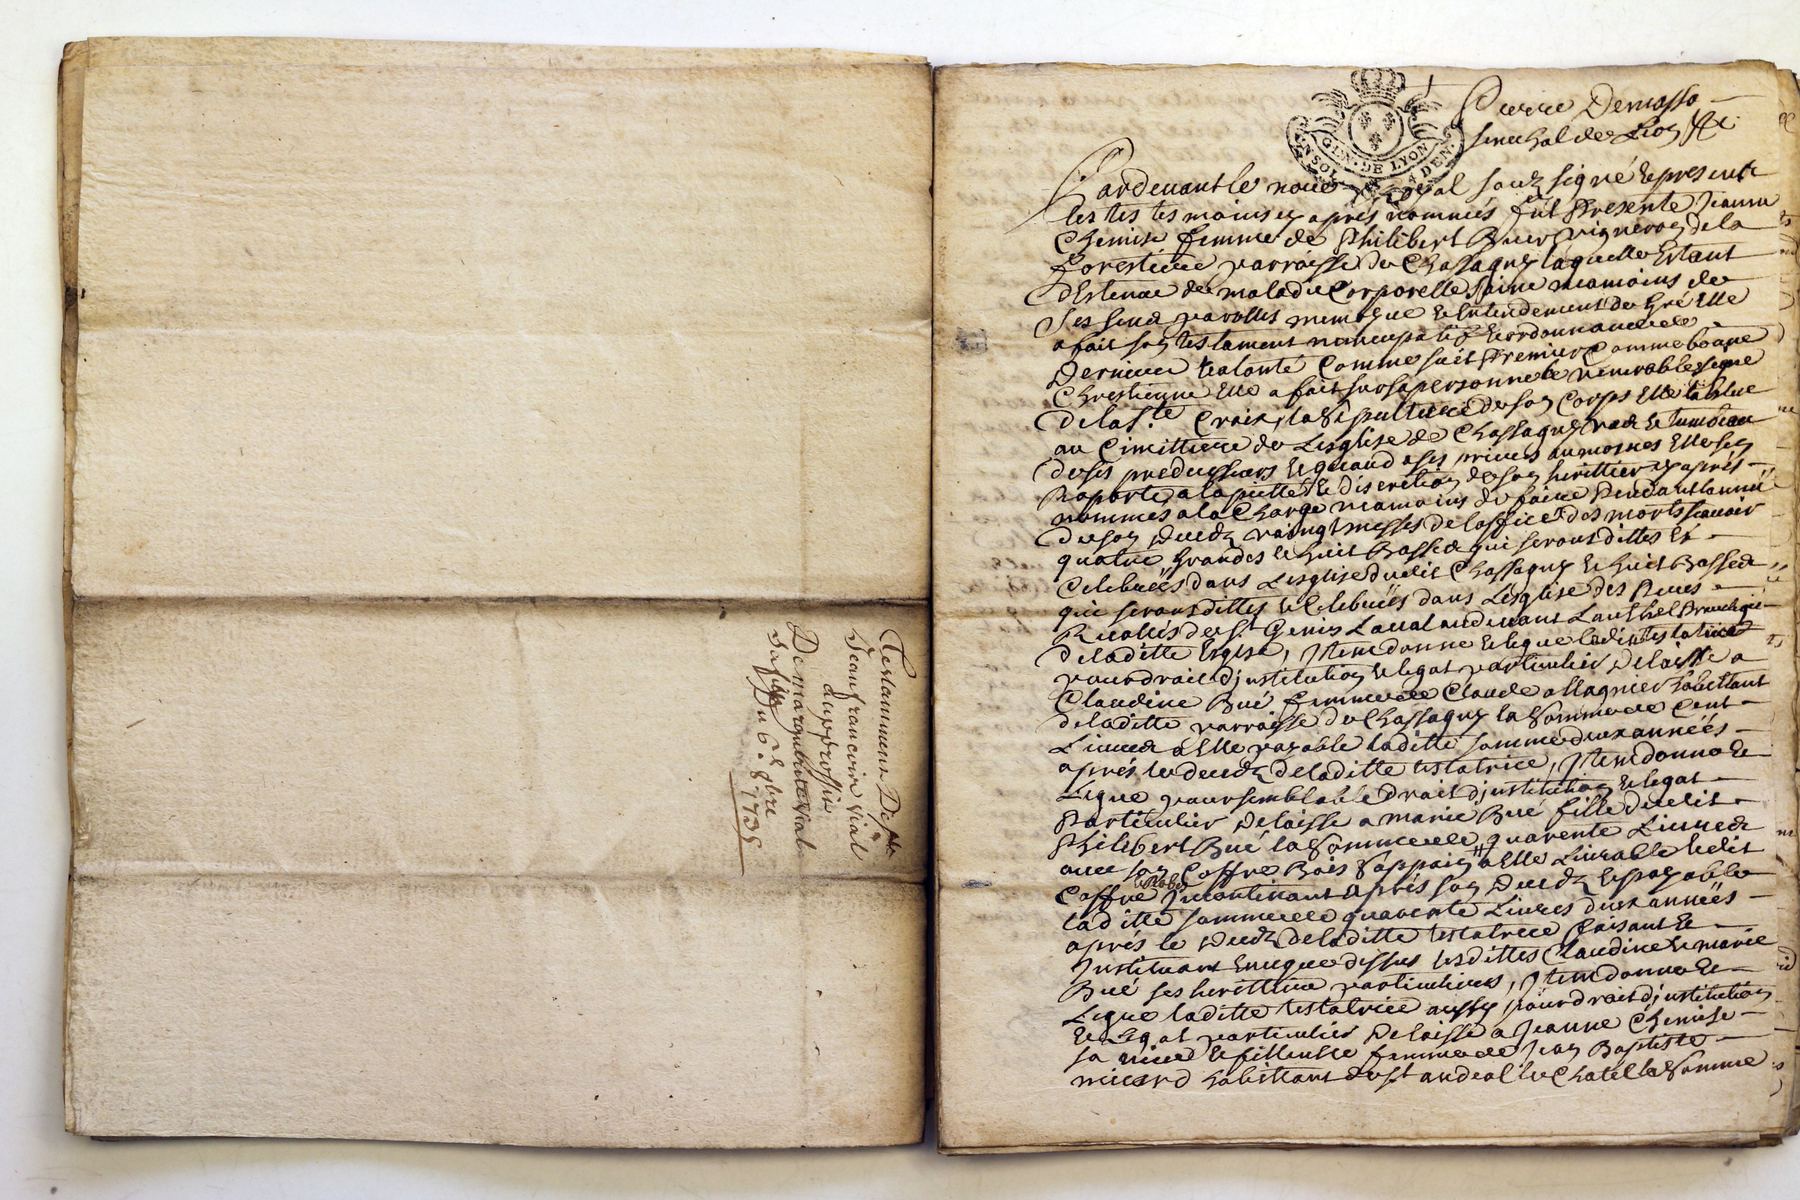 Testamment De
Jean francois vial
a
Du 6e 8bre
1735
GEN. DE LYON
Pierre Demasso
senechal de Lion &c
Pardevant le notaire Royal souz signé & presents
les tesmoins cy aprés nommés fut Presente Jeanne
Chemise femme de Philibert Buer vigneron de la
forestiere parroisse de Chassagny laquelle Estant
detenue de maladie Corporelle saine neamoins de
ses sens parolles memoire & Entendement de gré Elle
a fait son testament nuncupatif & ordonnance de
Derniere volonté Comme suit Premier Comme bonne
Chrestienne Elle a fait sur sa personne le venerable signe
de la Ste Croix, la Sepulture de son Corps Elle la Elue
au Cimittiere de Lesglise de Chassagny vas & tumbeau
de ses predecesseurs & quand a ses prieres aumosnes Elle sen
Raporte a la pietté & discretion de son herittier cy aprés
nommés a la Charge neamoins de faire Dire dans lannée
de son Decedz vaingt messes de loffice des morts scavoir
quatre grandes & huit Basses qui seront dittes Et
Celebrées dans Lesglise dudit Chassagny & huit Basses
qui seront dittes & Celebrées dans Lesglise des Peres
Recollés de St Genis Laval au devant Lauthel Privilegié
de laditte Esglise, Item donne & legue laditte testatrice
pour droit dinstitution & legat particulier Delaisse a
Claudine Bué femme de Claude Magnier habittant
de laditte parroisse de Chassagny la Somme de Cent
Livres a Elle payable laditte somme deux années
aprés le decedz de laditte testatrice, Item donne &
Legue pour semblable droit dinstitution & legat
Particulier Delaisse a marie Bué fille dudit
Philibert Bué la Somme de quarente Livres
avec son Coffre Bois Sappain a Elle Livrable ledit
Coffre Incontinant aprés son Decedz & payable
laditte somme de quarente Livres deux années
aprés le Decedz de laditte testatrice faisant &
Instituant en ce que dessus lesdittes Claudine & marie
Bué ses herittieres particulieres, Item donne &
Legue laditte testatrice aussy pour droit dinstitution
& legat particulier Delaisse a Jeanne Chemise
sa niece & fillentte femme de Jean Baptiste
micard habittant de St andeol le Chatel la Somme